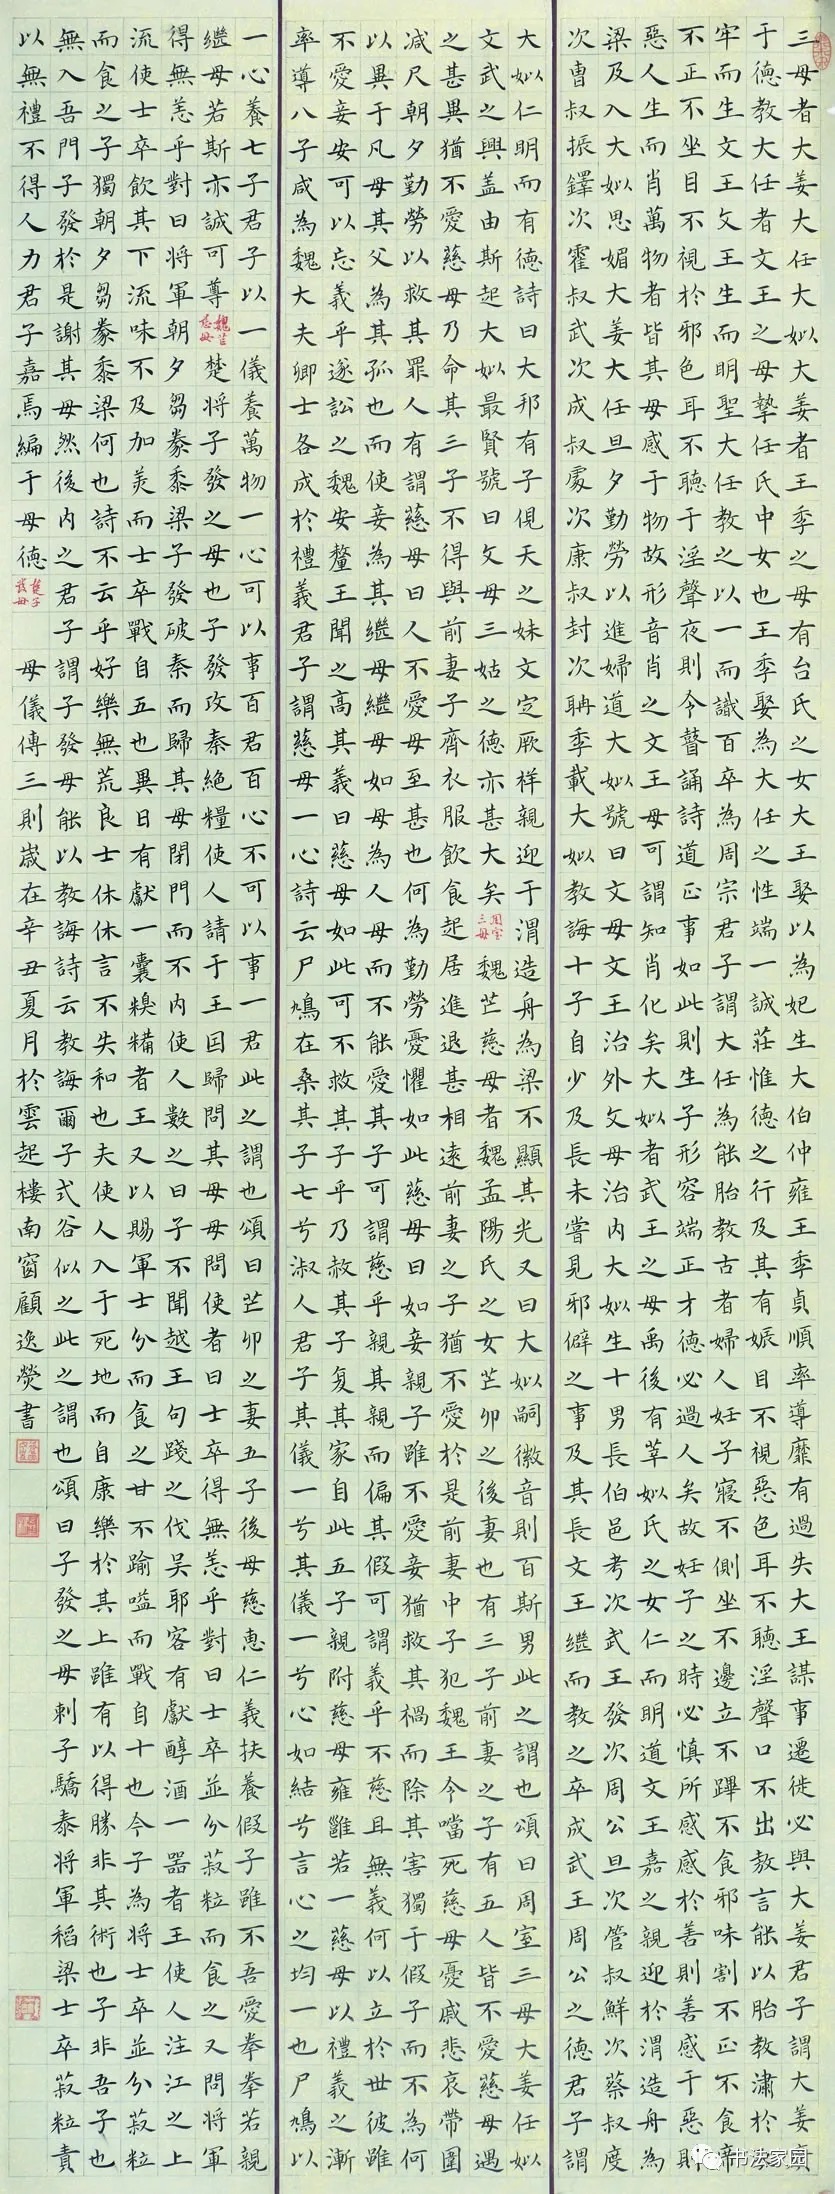 三母者大姜大任大姒大姜者王季之母有台氏之女大王娶以為妃生大伯仲雍王季貞順率導靡有過失大王謀事遷徙必與大姜君子謂大姜廣
于德教大任者文王之母摯任氏中女也王季娶為大任之性端一誠莊惟德之行及其有娠目不視惡色耳不聽淫聲口不出敖言能以胎教於
牢而生文王文王生而明聖大任教之以一而識百卒為周宗君子謂大任為能胎教古者婦人妊子寢不側坐不邊立不蹕不食邪味割不正不食席
不正不坐目不視於邪色耳不聽于淫聲夜則令瞽誦詩道正事如此則生子形容端正才德必過人矣故妊子之時必慎所感感於善則善感于惡則
惡人生而肖萬物者皆其母感于物故形音肖之文王母可謂知肖化矣大姒者武王之母禹後有莘姒氏之女仁而明道文王嘉之親迎於渭造舟為
梁及入大姒思媚大姜大任旦夕勤勞以進婦道大姒號曰文母文王治外文母治內大姒生十男長伯邑考次武王發次周公旦次管叔鮮次蔡叔度
次曹叔振鐸次霍叔武次成叔處次康叔封次聃季載大姒教誨十子自少及長未嘗見邪僻之事及其長文王繼而教之卒成武王周公之德君子謂
大姒仁明而有德詩曰大邦有子俔天之妹文定厥祥親迎于渭造舟為梁不顯其光又曰大姒嗣徽音則百斯男此之謂也頌曰周室三母大姜任姒
文武之興蓋由斯起大姒最賢號曰文母三姑之德亦甚大矣周室三母魏芒慈母者魏孟陽氏之女芒卯之後妻也有三子前妻之子有五人皆不愛慈母遇
之甚異猶不愛慈母乃命其三子不得與前妻子齊衣服飲食起居進退甚相遠前妻之子猶不愛於是前妻中子犯魏王令噹死慈母憂戚悲哀帶圍
減尺朝夕勤勞以救其罪人有謂慈母曰人不愛母至甚也何為勤勞憂懼如此慈母曰如妾親子雖不愛妾猶救其禍而除其害獨于假子而不為何
以異于凡母其父為其孤也而使妾為其繼母繼母如母為人母而不能愛其子可謂慈乎親其親而偏其假可謂義乎不慈且無義何以立於世彼雖
不愛妾安可以忘義乎遂訟之魏安釐王聞之高其義曰慈母如此可不救其子乎乃赦其子复其家自此五子親附慈母雍雝若一慈母以禮義之漸
率導八子咸為魏大夫卿士各成於禮義君子謂慈母一心詩云尸鳩在桑其子七兮淑人君子其儀一兮其儀一兮心如結兮言心之均一也尸鳩以
一心養七子君子以一儀養萬物一心可以事百君百心不可以事一君此之謂也頌曰芒卯之妻五子後母慈惠仁義扶養假子雖不吾愛拳拳若親
繼母若斯亦誠可尊魏芒慈母楚將子發之母也子發攻秦絕糧使人請于王因歸問其母母問使者曰士卒得無恙乎對曰士卒並分菽粒而食之又問將軍
得無恙乎對曰將軍朝夕芻豢黍梁子發破秦而歸其母閉門而不內使人數之曰子不聞越王句踐之伐吳耶客有獻醇酒一器者王使人注江之上
流使士卒飲其下流味不及加美而士卒戰自五也異日有獻一囊糗糒者王又以賜軍士分而食之甘不踰嗌而戰自十也今子為將士卒並分菽粒
而食之子獨朝夕芻豢黍梁何也詩不云乎好樂無荒良士休休言不失和也夫使人入于死地而自康樂於其上雖有以得勝非其術也子非吾子也
無入吾門子發於是謝其母然後內之君子謂子發母能以教誨詩云教誨爾子式谷似之此之謂也頌曰子發之母刺子驕泰將軍稻梁士卒菽粒責
以無禮不得人力君子嘉焉編于母德楚子發母 母儀傳三則歲在辛丑夏月於雲起樓南窗顧逸熒書
书法家园